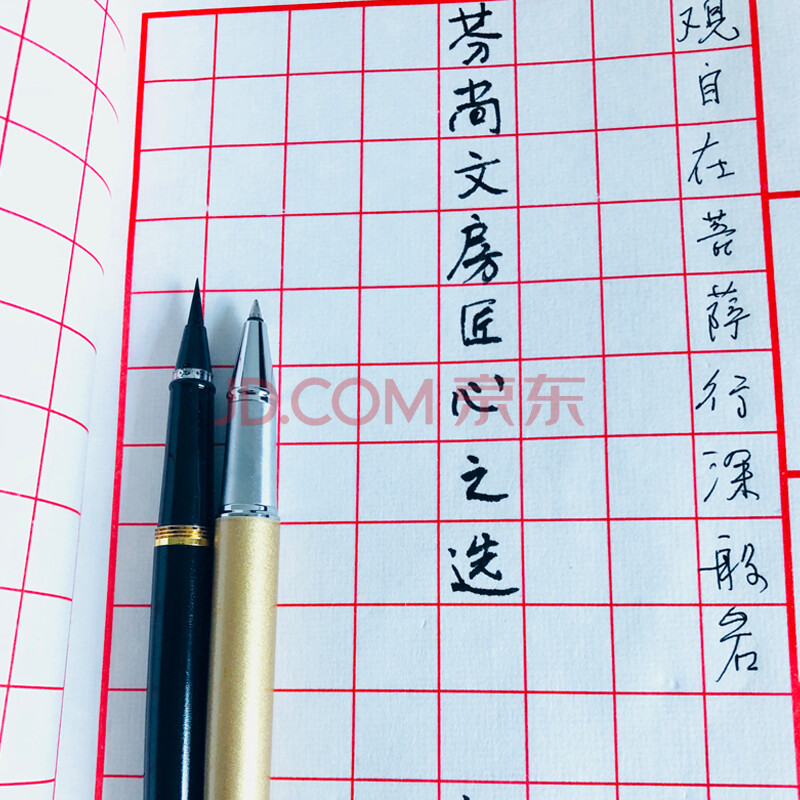 观自在菩萨行深般若
芬尚文房匠心之选
JD.COM 京东